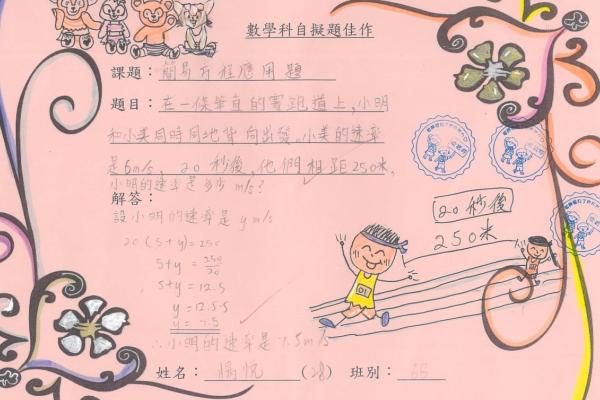 數學科自擬題佳作
課題：簡易方程應用題
題目：在一條筆直的賽跑道上，小明
和小美同時同地背向出發。小美的速率
是5m/s，20秒後，他們相距250米，
小明的速率是多少 m/s？
解答：
設小明的速率是 y m/s
20(5+y)=250
5+y=250/20
5+y=12.5
y=12.5-5
y=7.5
∴小明的速率是7.5m/s
20秒後
250米
姓名：悅(28) 班別：